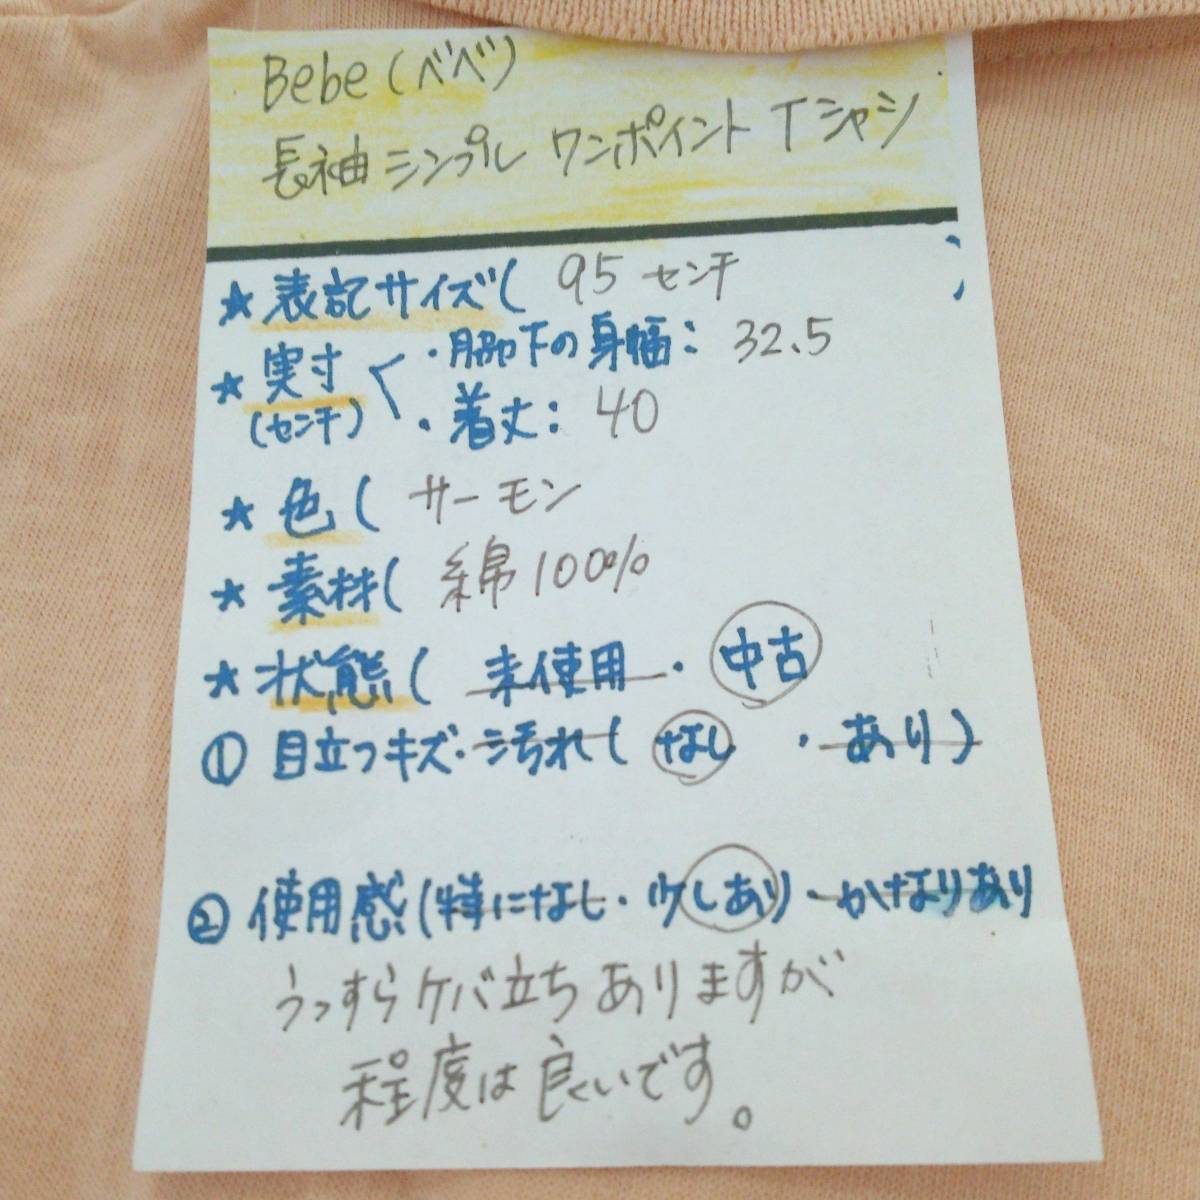 Bebe(べべ)
長袖シンプル ワンポイント Tシャツ
★表記サイズ( 95 センチ
★実寸(センチ)
・脇下の身幅: 32.5
・着丈: 40
★色( サーモン
★素材( 綿100%
★状態( 未使用・中古
① 目立つキズ・汚れ( なし ・あり)
②使用感(特になし・少しあり・かなりあり
うっすらケバ立ちありますが
程度は良いです。